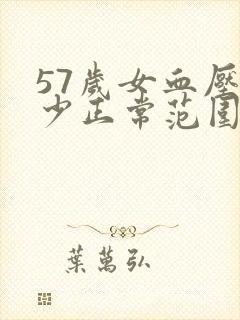 57歲女血壓
少正常范圍
葉萬弘